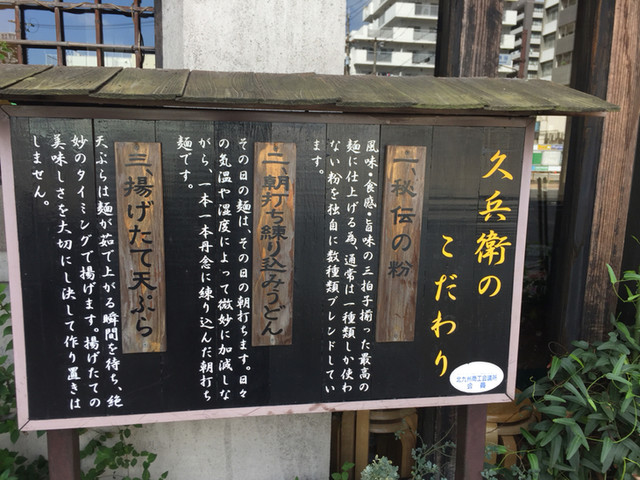 久兵衛の
こだわり
一、秘伝の粉
風味・食感・旨味の三拍子揃った最高の
麺に仕上げる為、通常は一種類しか使わ
ない粉を独自に数種類ブレンドしてい
ます。
二、朝打ち練り込みうどん
その日の麺は、その日の朝打ちます。日々
の気温や湿度によって微妙に加減しな
がら、一本一本丹念に練り込んだ朝打ち
麺です。
三、揚げたて天ぷら
天ぷらは麺が茹で上がる瞬間を待ち、絶
妙のタイミングで揚げます。揚げたての
美味しさを大切にし決して作り置きは
しません。
北九州商工会議所
会員